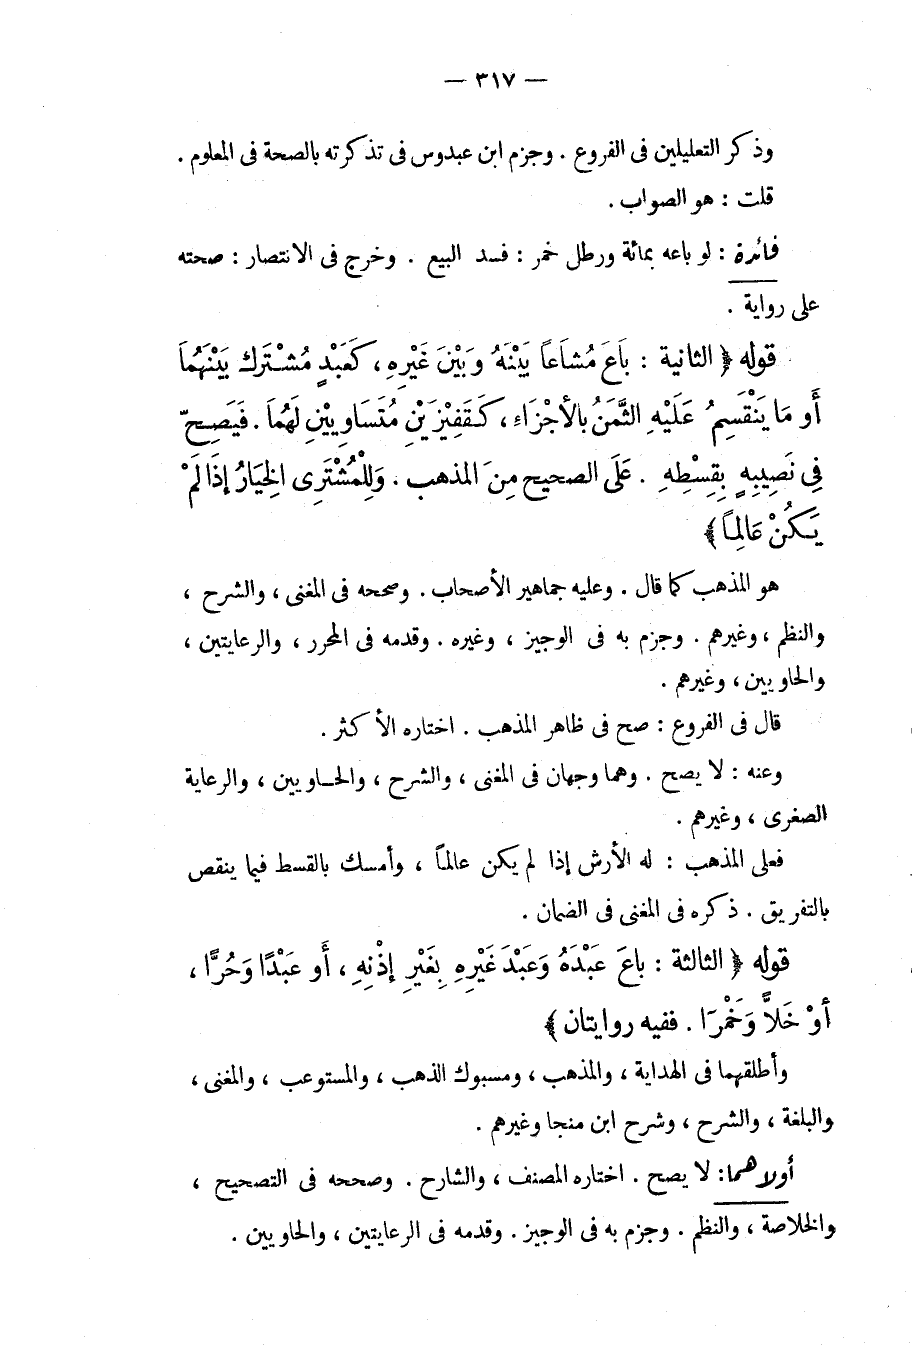 — ٣١٧ —
وذكر التعليلين فى الفروع . وجزم ابن عبدوس فى تذكرته بالصحة فى المعلوم .
قلت : هو الصواب .
فائدة : لو باعه بمائة ورطل خمر : فسد البيع . وخرج فى الانتصار : صحته
على رواية .
قوله ﴿ الثانية : بَاعَ مُشَاعاً بَيْنَهُ وَبَيْنَ غَيْرِهِ ، كَعَبْدٍ مُشْتَرَك بَيْنَهُمَا
أَو مَا يَنْقَسِمُ عَلَيْهِ الثَّمَنُ بالأجْزَاءِ ، كَقَفِيْزَيْنِ مُتَسَاوِيَيْنِ لَهُمَا . فَيَصِحّ
فِي نَصِيبِهِ بِقِسْطِهِ . عَلَى الصحيح مِنَ المذهب . وَلِلْمُشْتَرِى الخِيَارُ إذَا لَمْ
يَكُنْ عَالِماً ﴾
هو المذهب كما قال . وعليه جماهير الأصحاب . وصححه فى المغنى ، والشرح ،
والنظم ، وغيرهم . وجزم به فى الوجيز ، وغيره . وقدمه فى المحرر ، والرعايتين ،
والحاويين ، وغيرهم .
قال فى الفروع : صح فى ظاهر المذهب . اختاره الأكثر .
وعنه : لا يصح . وهما وجهان فى المغنى ، والشرح ، والحاويين ، والرعاية
الصغرى ، وغيرهم .
فعلى المذهب : له الأرش إذا لم يكن عالماً ، وأمسك بالقسط فيما ينقص
بالتفريق . ذكره فى المغنى فى الضمان .
قوله ﴿ الثالثة : باعَ عَبْدَهُ وَعَبْدَ غَيْرِهِ بِغَيْرِ إذْنِهِ ، أَو عَبْدًا وَحُرًّا ،
أوْ خَلاًّ وَخَمْرًا . ففيه روايتان ﴾
وأطلقهما فى الهداية ، والمذهب ، ومسبوك الذهب ، والمستوعب ، والمغنى ،
والبلغة ، والشرح ، وشرح ابن منجا وغيرهم .
أولاهما: لا يصح . اختاره المصنف ، والشارح . وصححه فى التصحيح ،
والخلاصة ، والنظم . وجزم به فى الوجيز . وقدمه فى الرعايتين ، والحاويين .